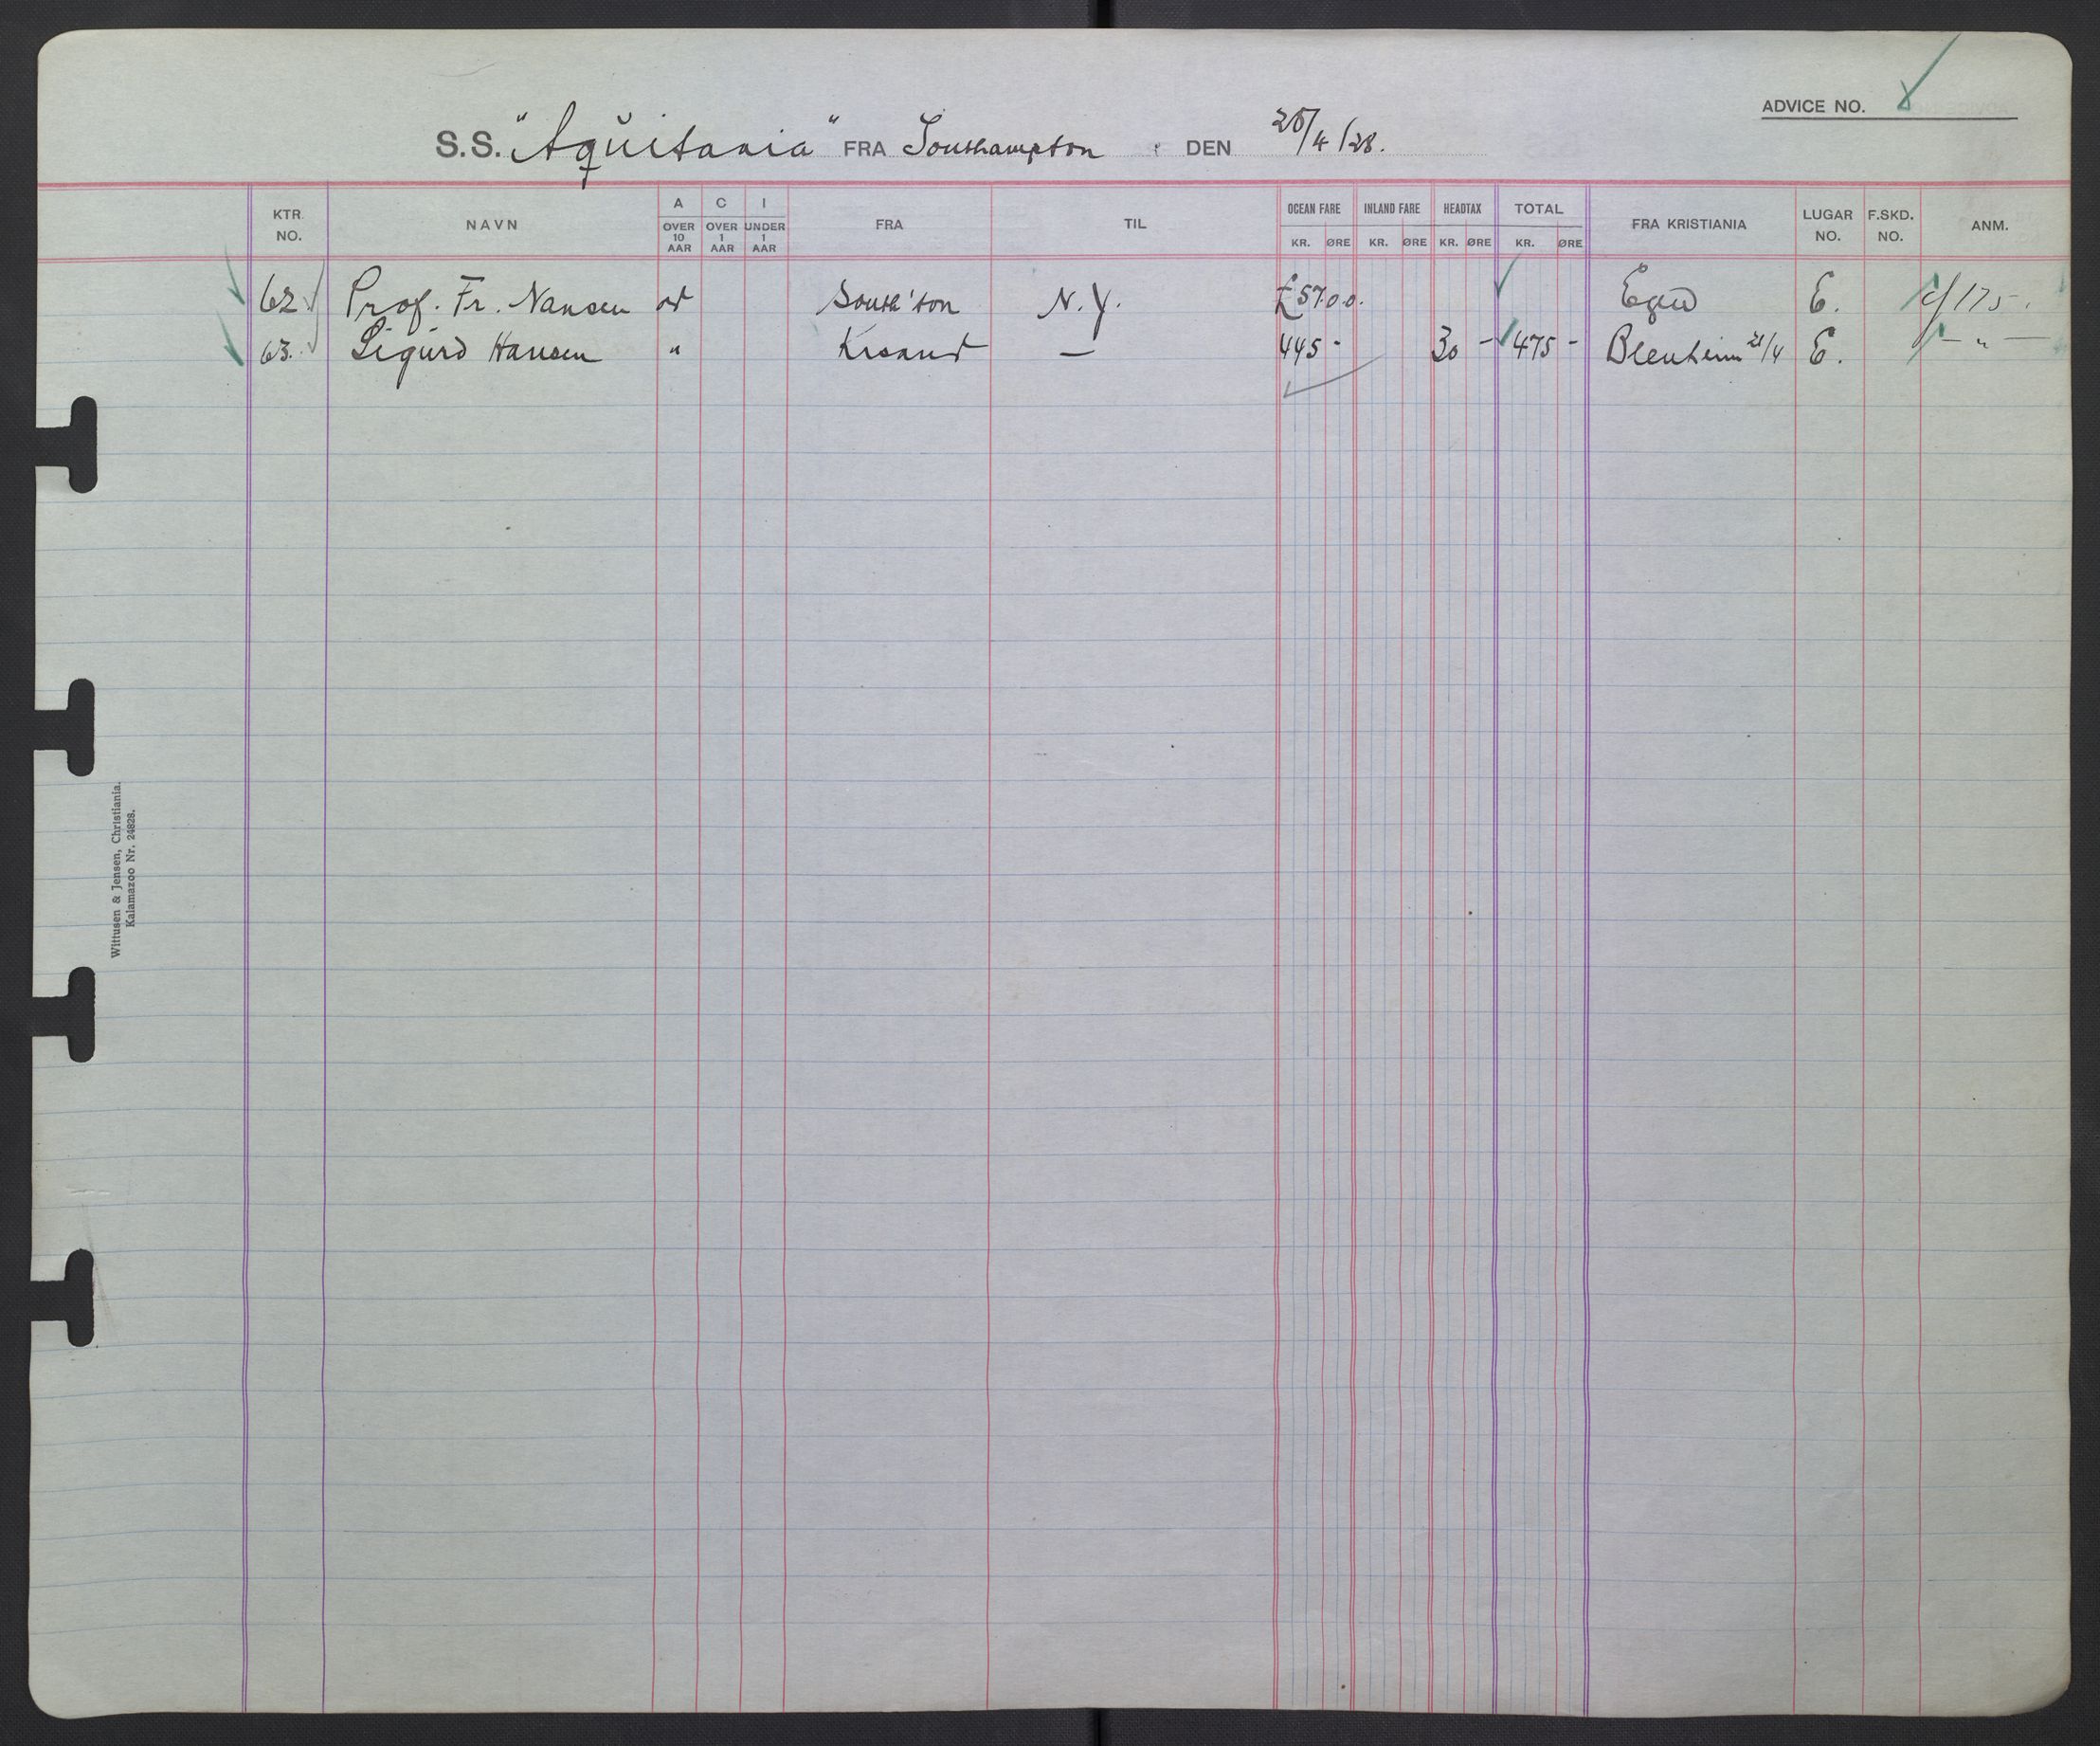 ADVICE NO.
S.S. "Aquitania" FRA Southampton DEN 25/4/28.
KTR. NO. NAVN A OVER 10 AAR C OVER 1 AAR I UNDER 1 AAR FRA TIL OCEAN FARE KR. ØRE INLAND FARE KR. ØRE HEADTAX KR. ØRE TOTAL KR. ØRE FRA KRISTIANIA LUGAR NO. F.SKD. NO. ANM.
62. Prof. Fr. Nansen South'ton N.Y. £57.0.0. E. c/175.
63. Sigurd Hansen " Krsand — 445 - 30 - 475 - Blenheim 21/4 E. — " —
Wittusen & Jensen, Christiania.
Kalamazoo Nr. 24828.